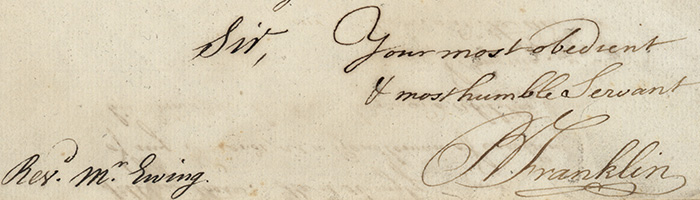 Sir, Your most obedient
& most humble Servant
B Franklin
Revd. Mr. Ewing.